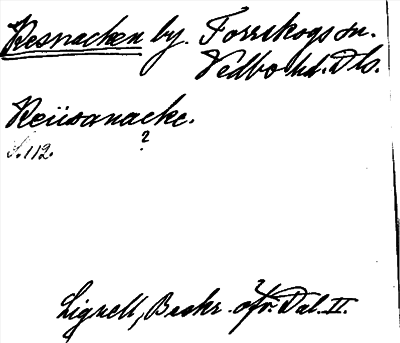 Resnacken by. Torrskogs sn.
Vedbo hd. Dls.
Reüsanacke.
S. 112. ?
Lignell, Beskr. öfv. Dal. II.